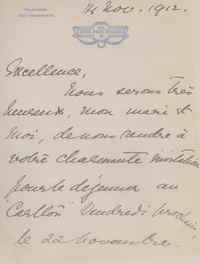 14 Nov. 1912.
Excellence,
Nous serons très
heureux, mon mari et
moi, de nous rendre à
votre charmante invitation
pour le déjeuner au
"Carlton" Vendredi prochain,
le 22 Novembre.